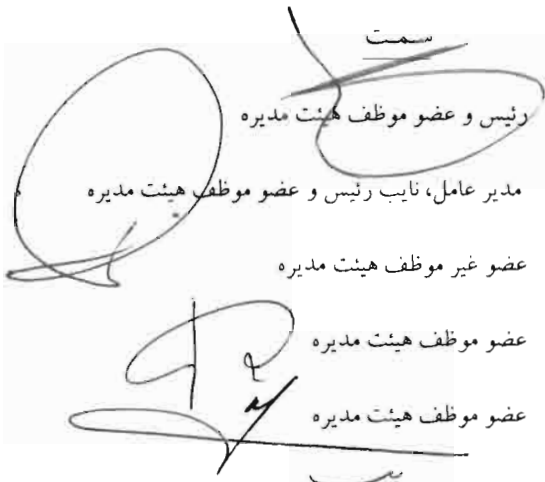 سمت
رئیس و عضو موظف هیئت مدیره
مدیر عامل، نایب رئیس و عضو موظف هیئت مدیره
عضو غیر موظف هیئت مدیره
عضو موظف هیئت مدیره
عضو موظف هیئت مدیره